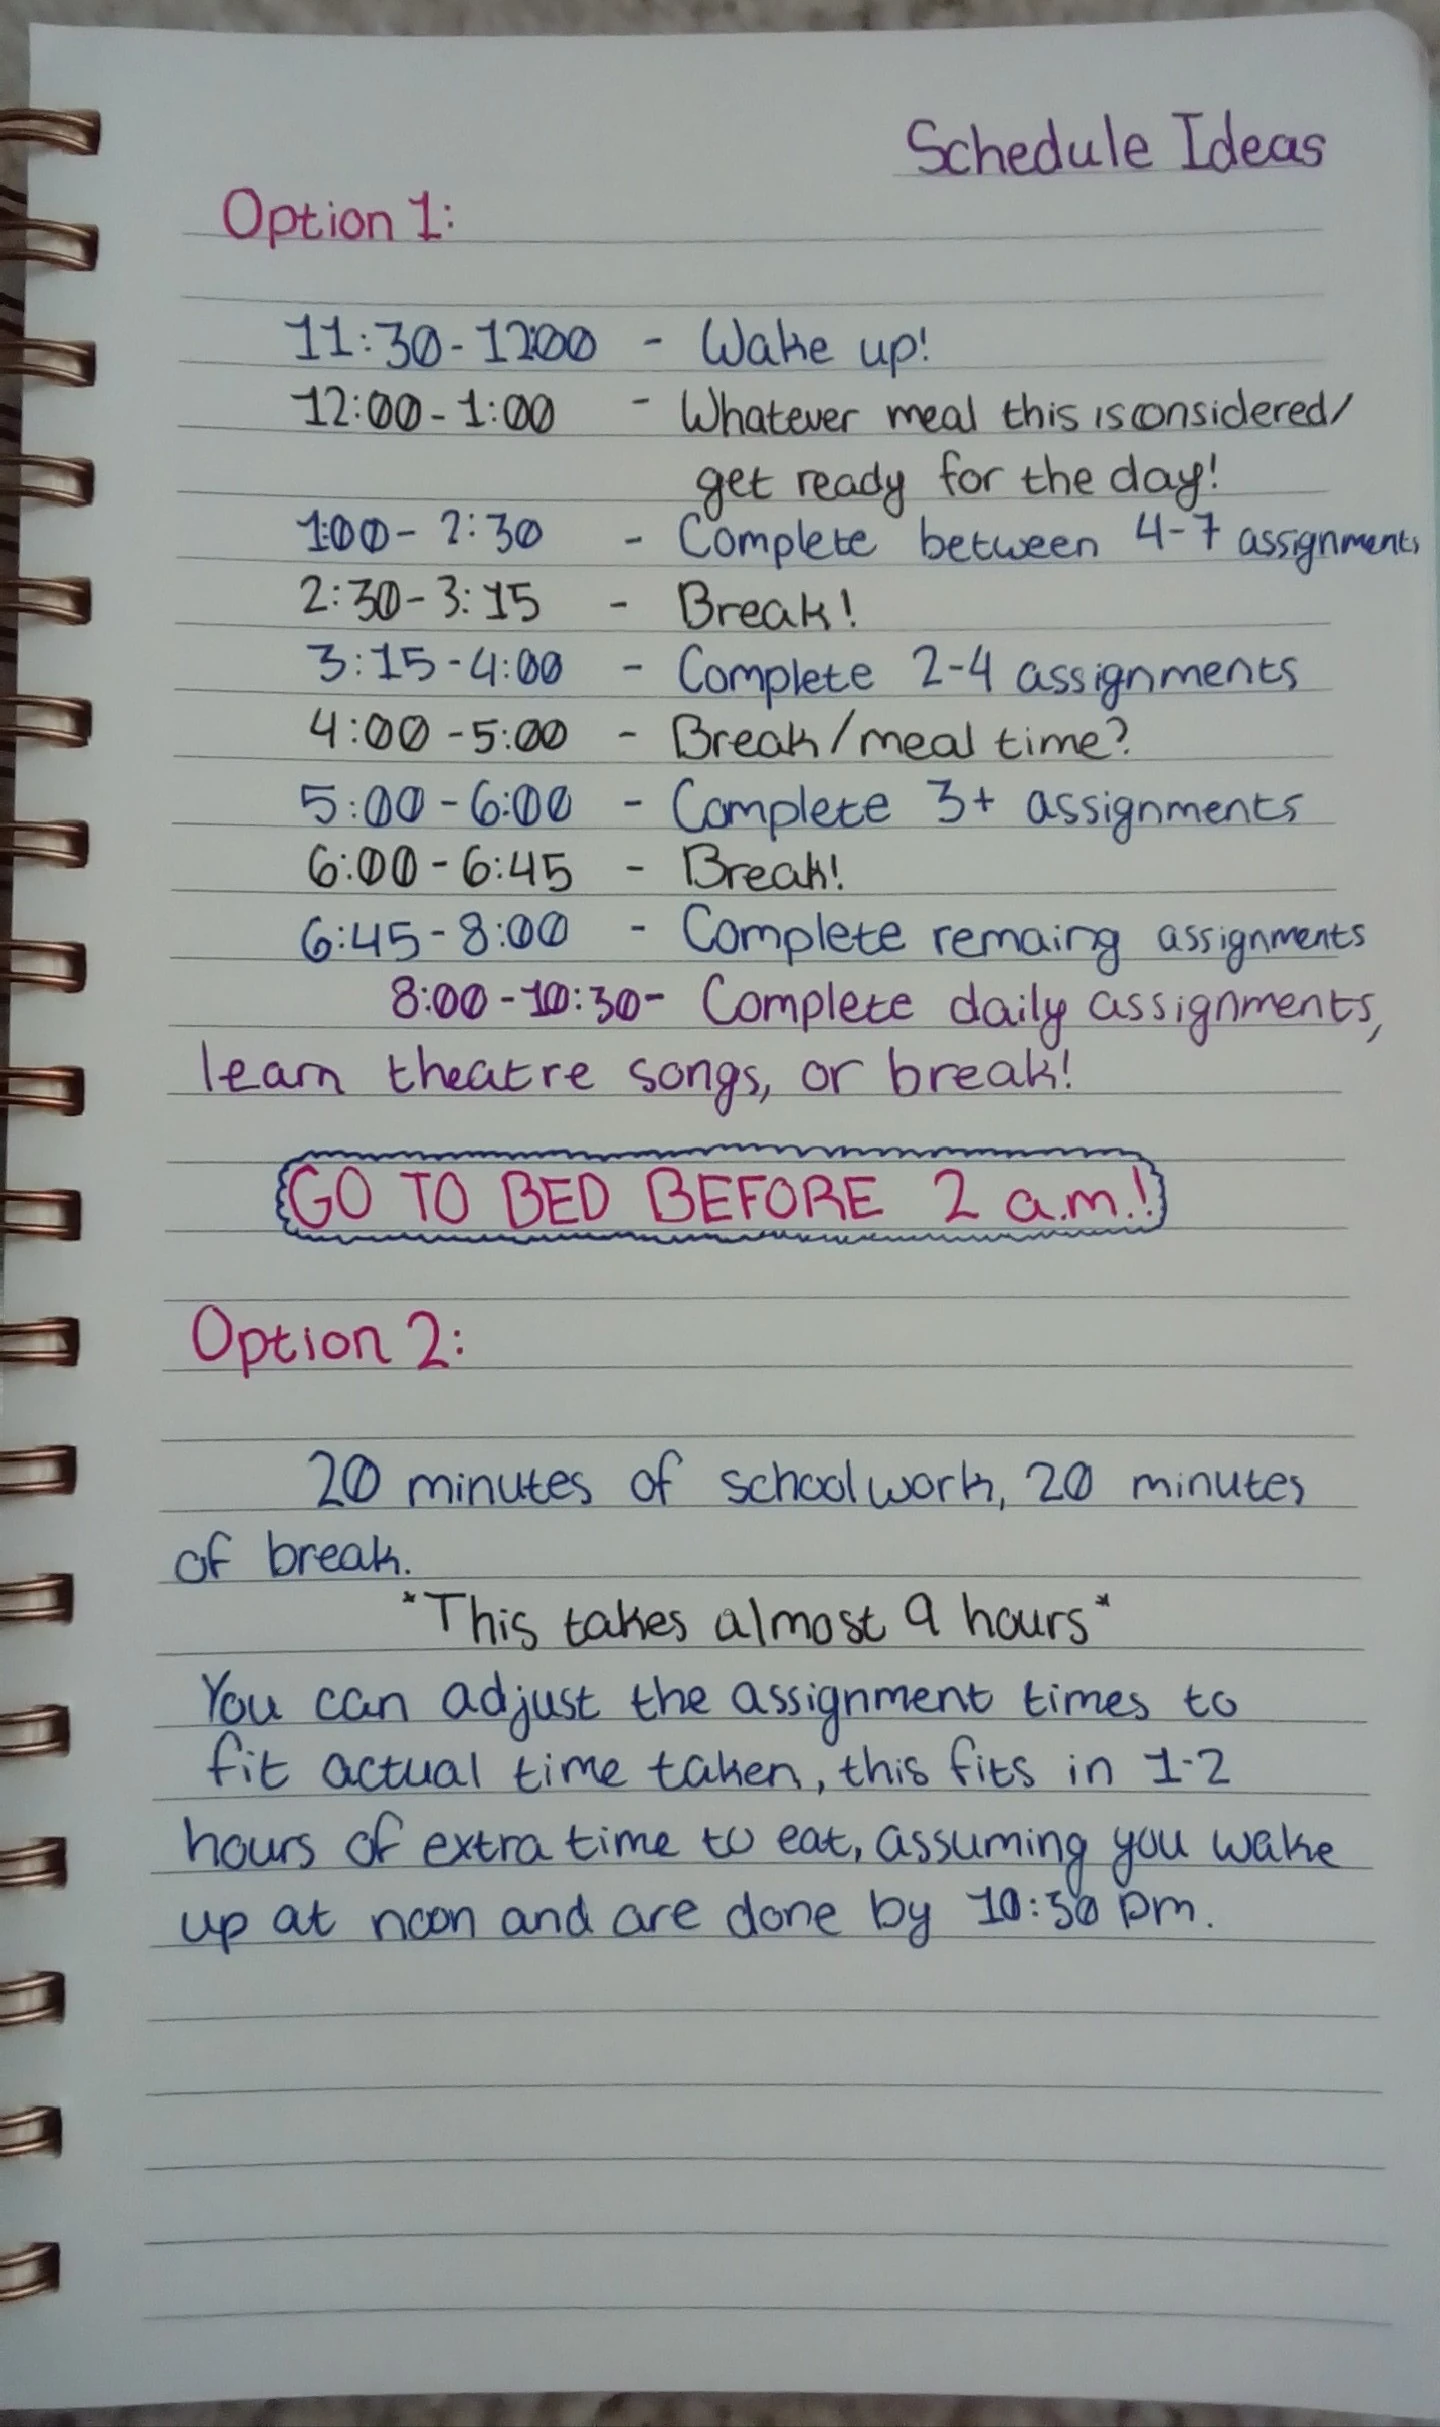 Schedule Ideas
Option 1:
11:30-12:00 - Wake up!
12:00-1:00 - Whatever meal this is considered/
get ready for the day!
1:00-2:30 - Complete between 4-7 assignments
2:30-3:15 - Break!
3:15-4:00 - Complete 2-4 assignments
4:00-5:00 - Break/meal time?
5:00-6:00 - Complete 3+ assignments
6:00-6:45 - Break!
6:45-8:00 - Complete remaing assignments
8:00-10:30- Complete daily assignments,
learn theatre songs, or break!
GO TO BED BEFORE 2 a.m.!
Option 2:
20 minutes of schoolwork, 20 minutes
of break.
*This takes almost 9 hours*
You can adjust the assignment times to
fit actual time taken, this fits in 1-2
hours of extra time to eat, assuming you wake
up at noon and are done by 10:30 pm.